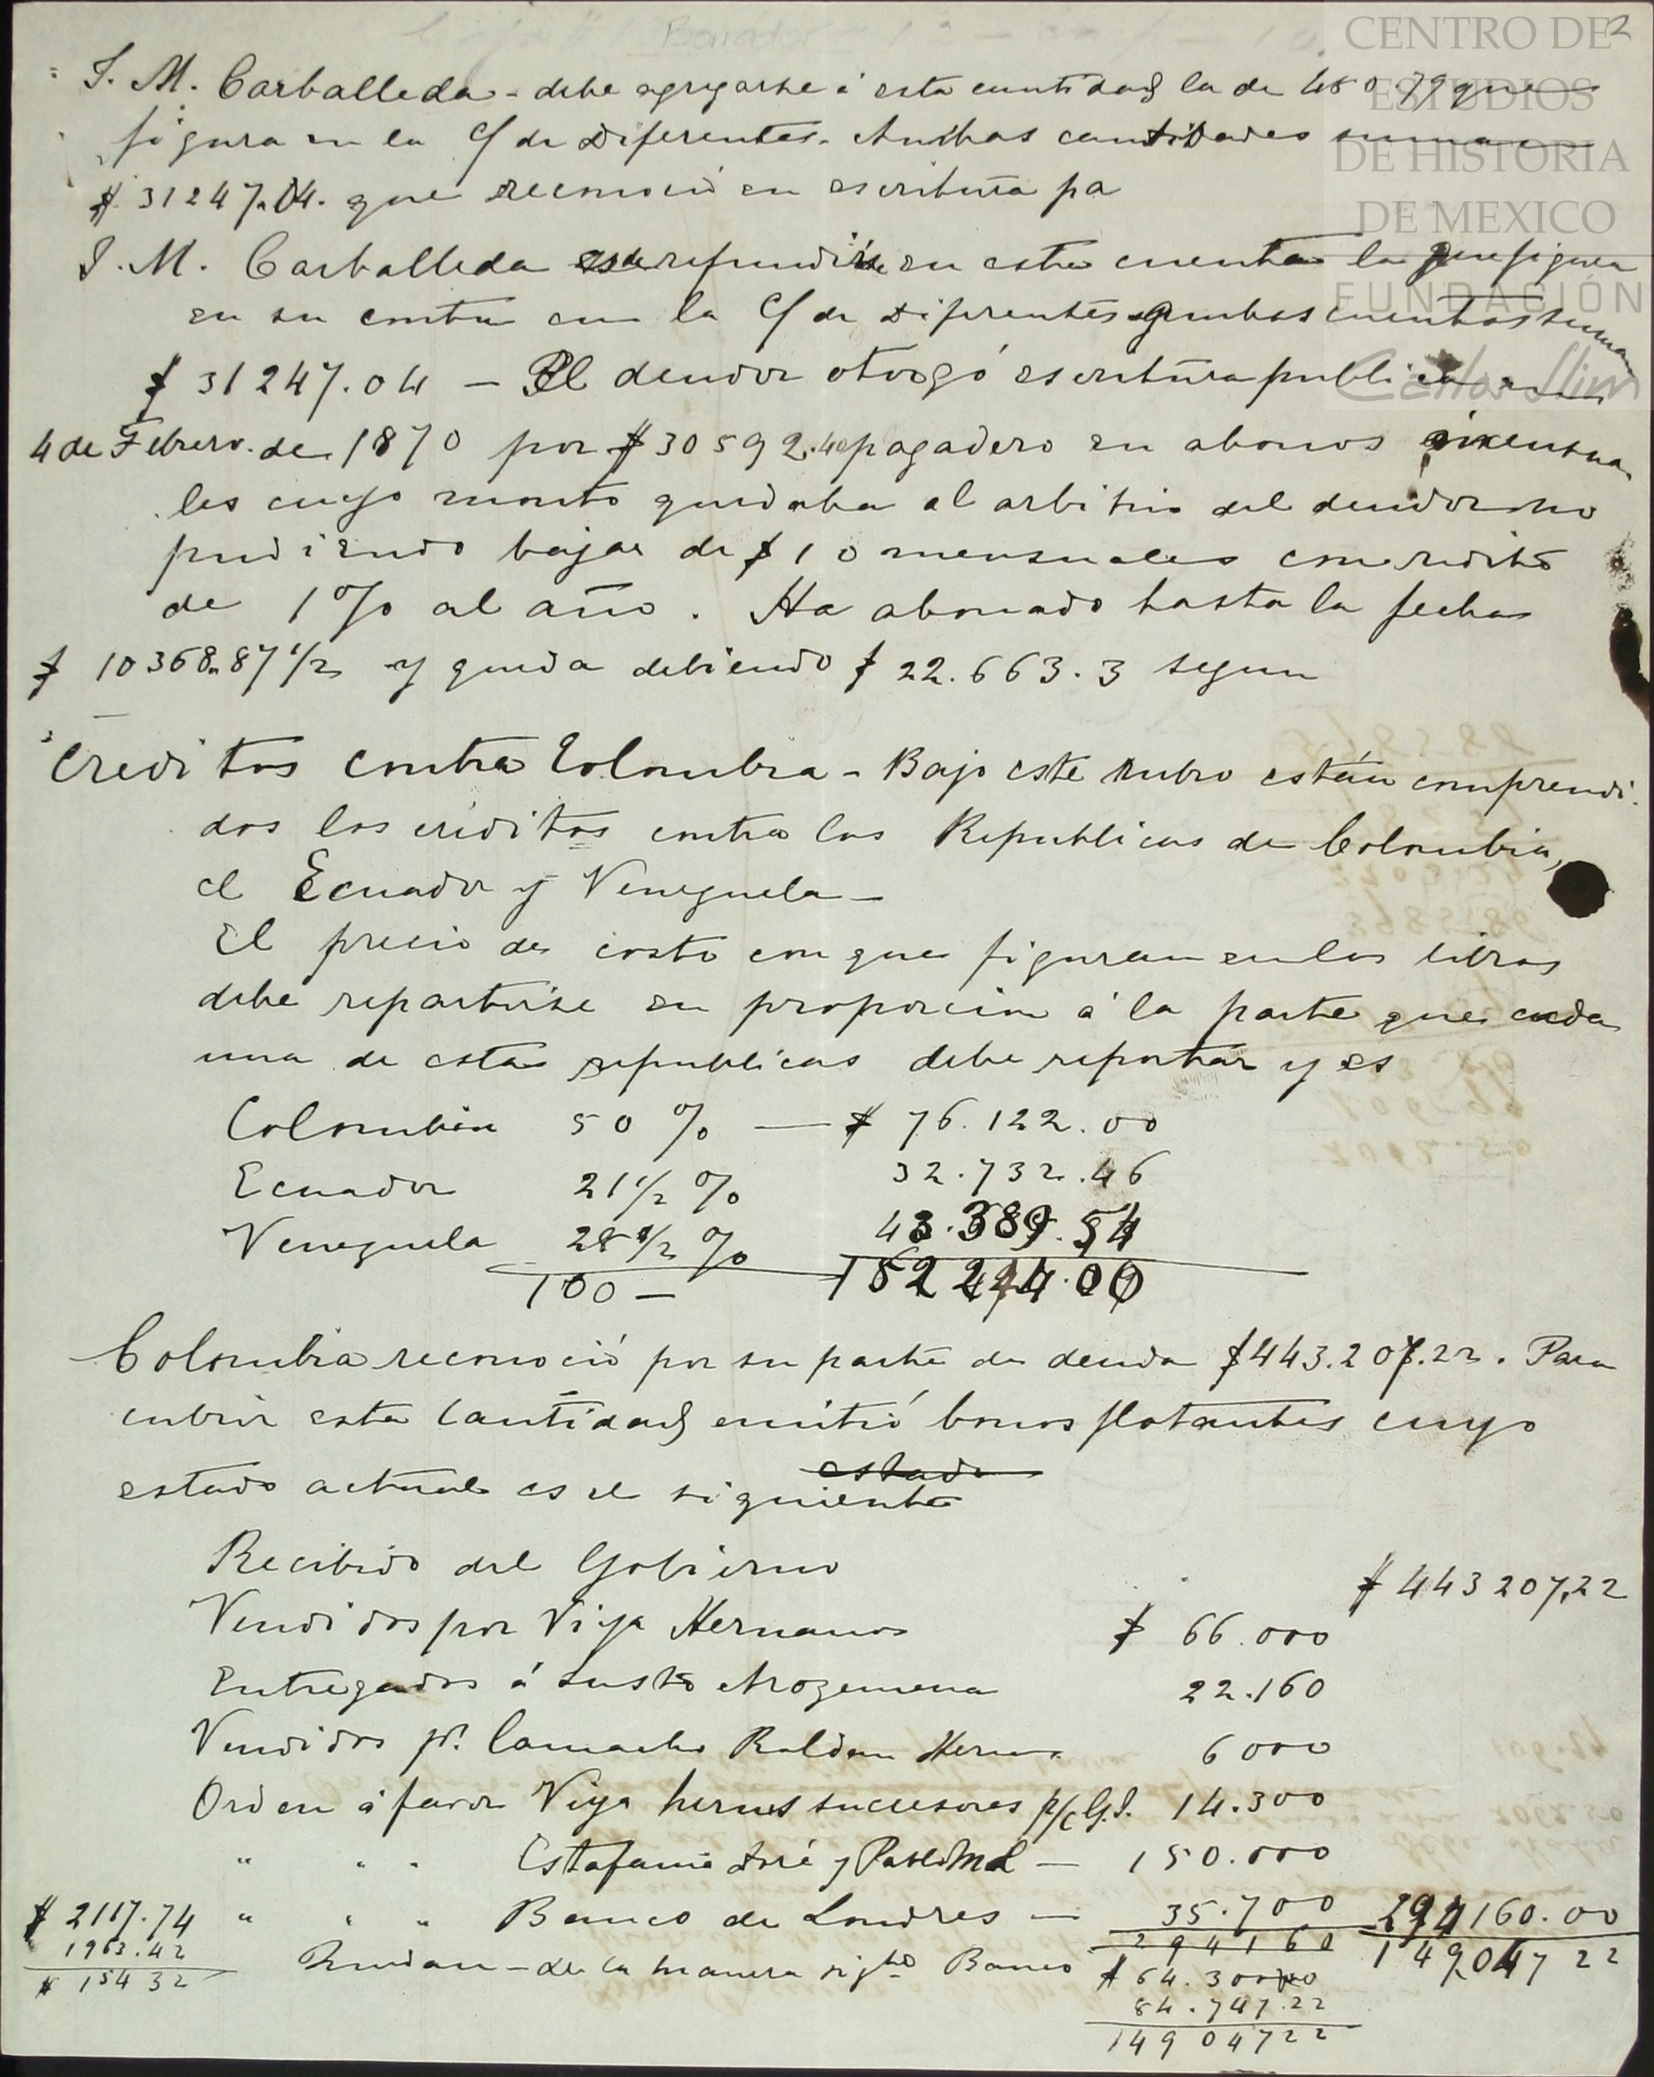 Borrador
2
CENTRO DE
ESTUDIOS
DE HISTORIA
DE MEXICO
FUNDACIÓN
Carlos Slim
J. M. Carballeda - debe agregarse á esta cantidad la de 480.79 que
figura en la C/ de Diferentes. Ambas cantidades suman
$ 31247.04. que reconoció en escritura pa
J. M. Carballeda refundirse en esta cuenta la que figura
en su contra en la C/ de Diferentes ambas cuentas suman
$ 31247.04 — El deudor otorgó escritura publica en
4 de Febrero de 1870 por $ 30592.40 pagadero en abonos mensua
les cuyo monto quedaba al arbitrio del deudor no
pudiendo bajar de $ 10 mensuales con redito
de 1% al año. Ha abonado hasta la fecha
$ 10368.87 1/2 y queda debiendo $ 22.663.3 segun
Creditos contra Colombia - Bajo este rubro están comprendi
dos los creditos contra las Republicas de Colombia,
el Ecuador y Venezuela —
El precio de costo con que figuran en los libros
debe repartirse en proporcion á la parte que cada
una de estas republicas debe reportar y es
Colombia 50 % — $ 76.122.00
Ecuador 21 1/2 % 32.732.46
Venezuela 28 1/2 % 43.389.54
100 — 152 244.00
Colombia reconoció por su parte de deuda $ 443.207.22. Para
cubrir esta cantidad emitió bonos flotantes cuyo
estado
estado actual es el siguiente
Recibido del Gobierno $ 443207,22
Vendidos por Vija Hermanos $ 66.000
Entregados á Justo Arozemena 22.160
Vendidos pr. Camacho Roldan Herms 6000
Orden á favor Vija herms sucesores p/c G.J. 14.300
" " " Estafania José y — 150.000
" " " Banco de Londres — 35.700 294160.00
294160 149047 22
$ 2117.74
1963.42
$ 154 32
Quedan — de la manera sigte Banco $ 64.300
84.747.22
149 047 22